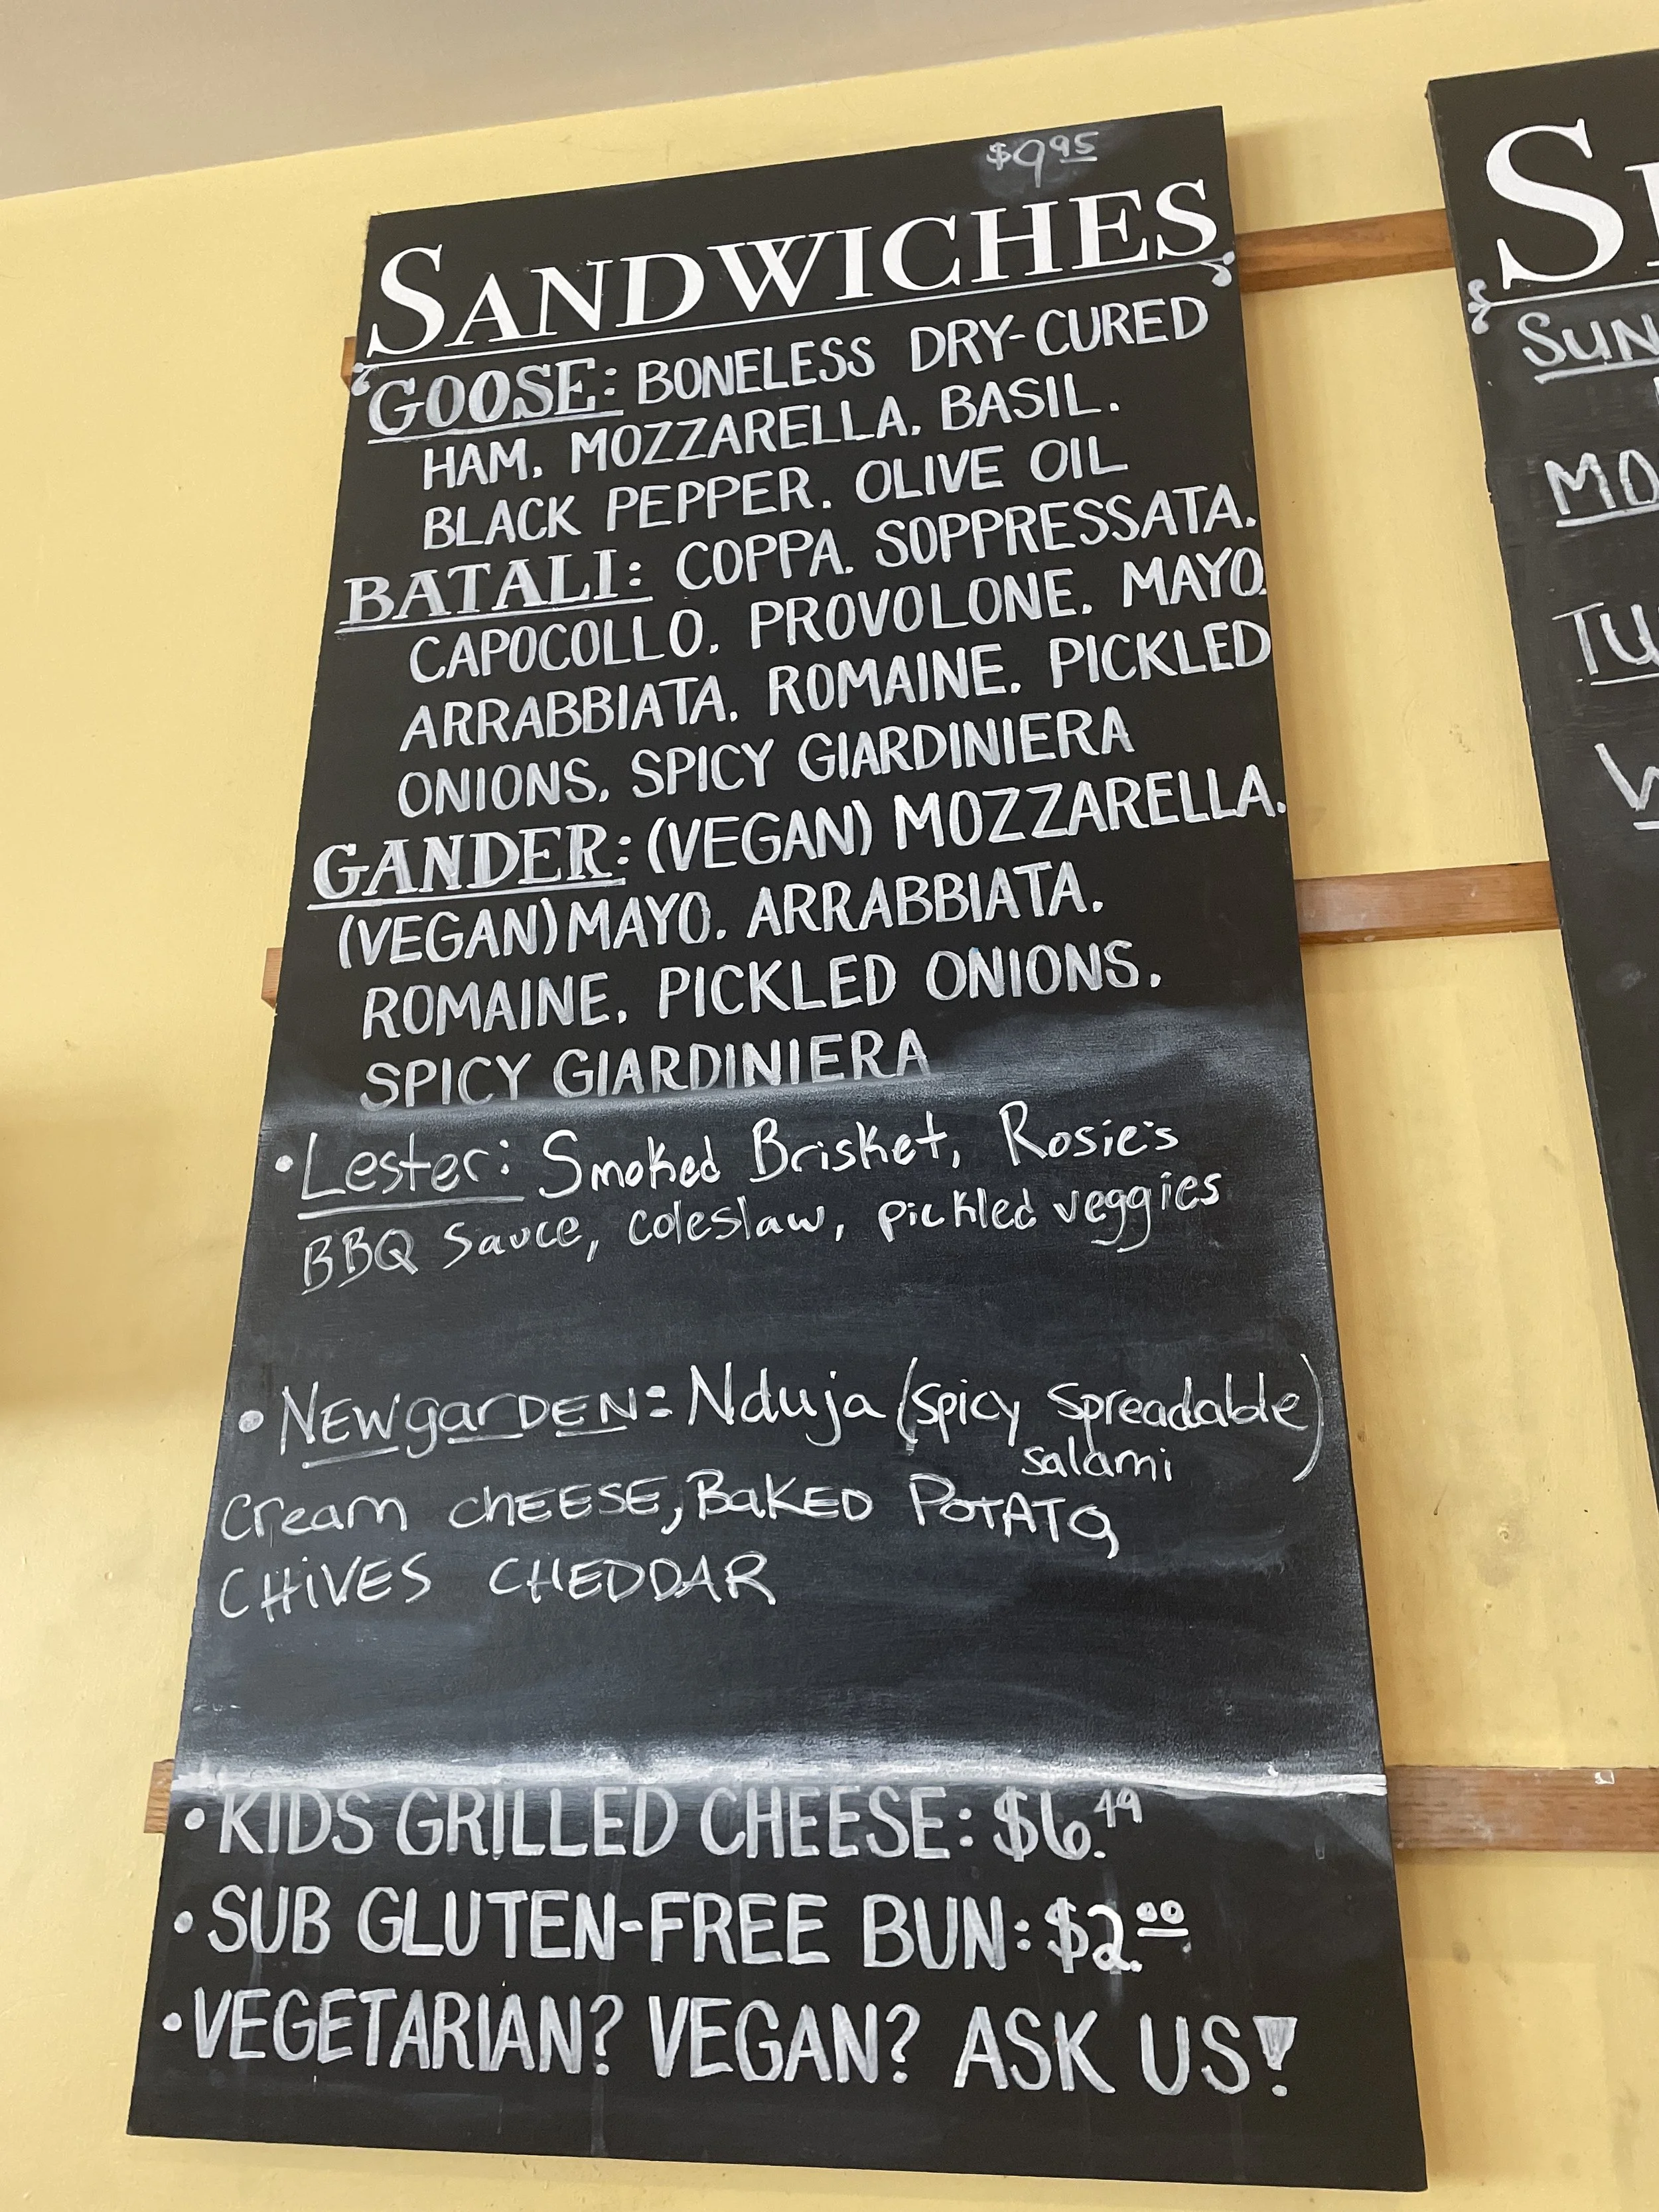 $9.95
SANDWICHES
GOOSE: BONELESS DRY-CURED
HAM. MOZZARELLA. BASIL.
BLACK PEPPER. OLIVE OIL
BATALI: COPPA. SOPPRESSATA.
CAPOCOLLO. PROVOLONE. MAYO.
ARRABBIATA. ROMAINE. PICKLED
ONIONS. SPICY GIARDINIERA
GANDER: (VEGAN) MOZZARELLA.
(VEGAN) MAYO. ARRABBIATA.
ROMAINE. PICKLED ONIONS.
SPICY GIARDINIERA
• Lester: Smoked Brisket, Rosie's
BBQ Sauce, coleslaw, pickled veggies
• NEWgarDEN: Nduja (spicy spreadable
salami)
Cream cHEESE, BaKED POTATO,
CHiVES CHEDDAR
• KIDS GRILLED CHEESE: $6.49
• SUB GLUTEN-FREE BUN: $2.00
• VEGETARIAN? VEGAN? ASK US!
SUN
MO
TU
W